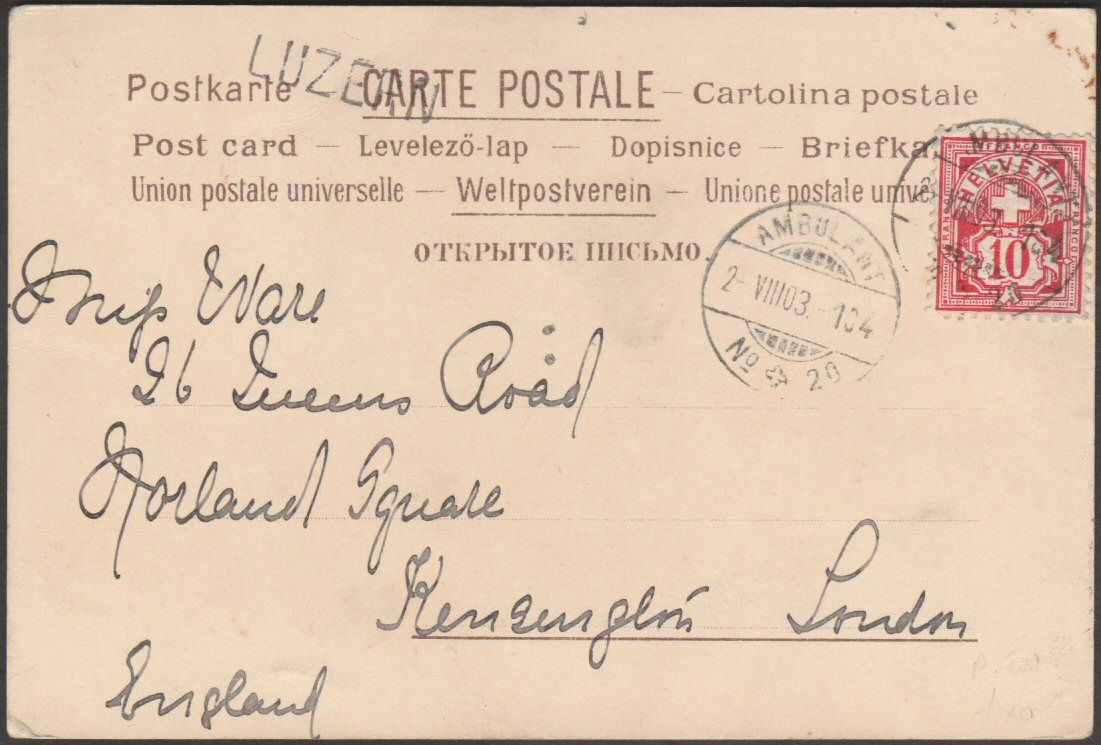 LUZERN
Postkarte CARTE POSTALE – Cartolina postale
Post card – Levelező-lap – Dopisnice – Briefka
Union postale universelle – Weltpostverein – Unione postale unive
ОТКРЫТОЕ ПИСЬМО.
HELVETIA
FRANCO
10
AMBULANT
2-VIII03.-104
No 20
Miss E Ware
26 Queens Road
Norland Square
Kensington London
England